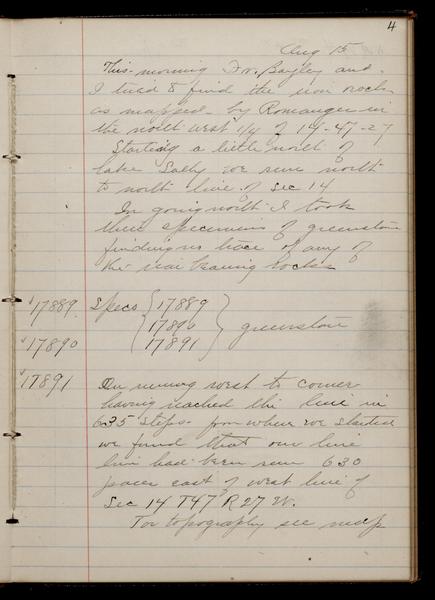 4
Aug 15
This morning Dr. Bayley and
I tried to find the iron rocks
as mapped by Rominger in
the north west 1/4 of 14-47-27
Starting a little north of
lake Sally we run north
to north line of Sec 14
In going north I took
three specimens of greenstone
finding no trace of any of
the iron bearing rocks
17889 Specs { 17889
17890 } greenstone
17890 17891
17891 On running west to corner
having reached the line in
635 steps from where we started
we found that our line
had been run 630
paces east of west line of
Sec 14 T47 R27 W.
For topography see map